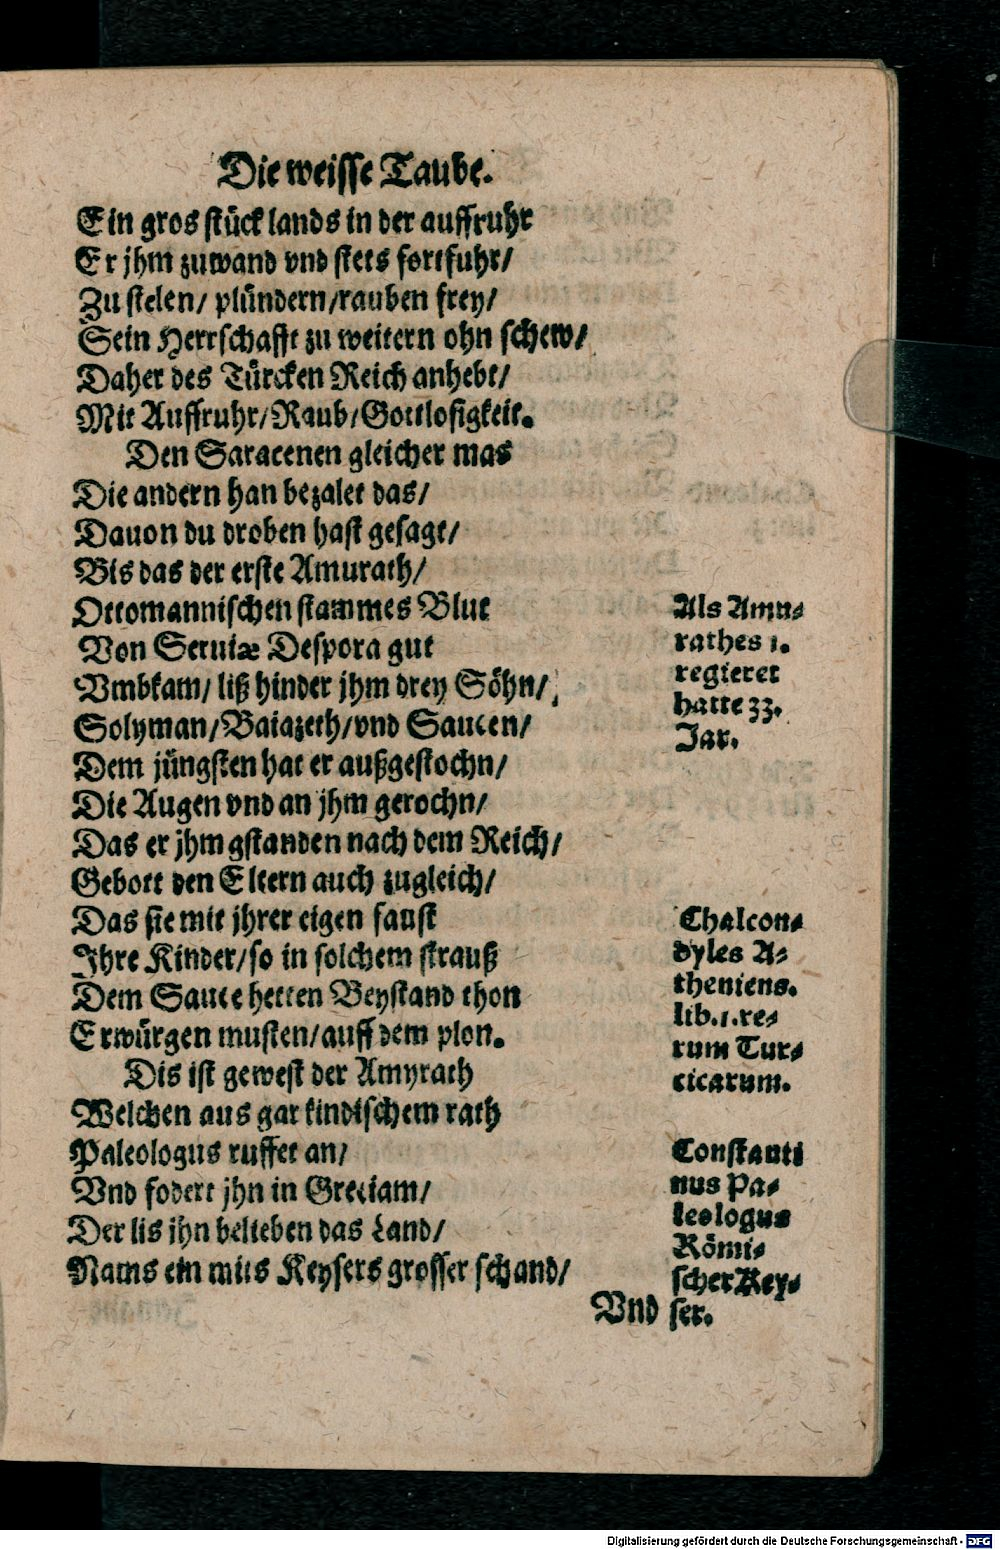 Die weisse Taube.
Ein gros stück lands in der auffruhr
Er jhm zuwand vnd stets fortfuhr/
Zu stelen/ plündern/rauben frey/
Sein Herrschafft zu weitern ohn schew/
Daher des Türcken Reich anhebt/
Mit Auffruhr/Raub/Gottlosigkeit.
Den Saracenen gleicher mas
Die andern han bezalet das/
Dauon du droben hast gesagt/
Bis das der erste Amurath/
Ottomannischen stammes Blut
Von Seruiæ Despora gut
Vmbkam/ liß hinder jhm drey Söhn/
Solyman/Baiazeth/vnd Saucen/
Dem jüngsten hat er außgestochn/
Die Augen vnd an jhm gerochn/
Das er jhm gstanden nach dem Reich/
Gebott den Eltern auch zugleich/
Das sie mit jhrer eigen faust
Ihre Kinder/so in solchem strauß
Dem Sauce hetten Beystand thon
Erwürgen musten/auff dem plon.
Dis ist gewest der Amyrath
Welchen aus gar kindischem rath
Paleologus ruffet an/
Vnd fodert jhn in Greciam/
Der lis jhn belieben das Land/
Nams ein mits Keysers grosser schand/
Vnd
Als Amu-
rathes 1.
regieret
hatte 33.
Jar.
Chalcon-
dyles A-
theniens.
lib.1.re-
rum Tur-
cicarum.
Constanti
nus Pa-
leologus
Römi-
scher Key-
ser.
Digitalisierung gefördert durch die Deutsche Forschungsgemeinschaft - DFG